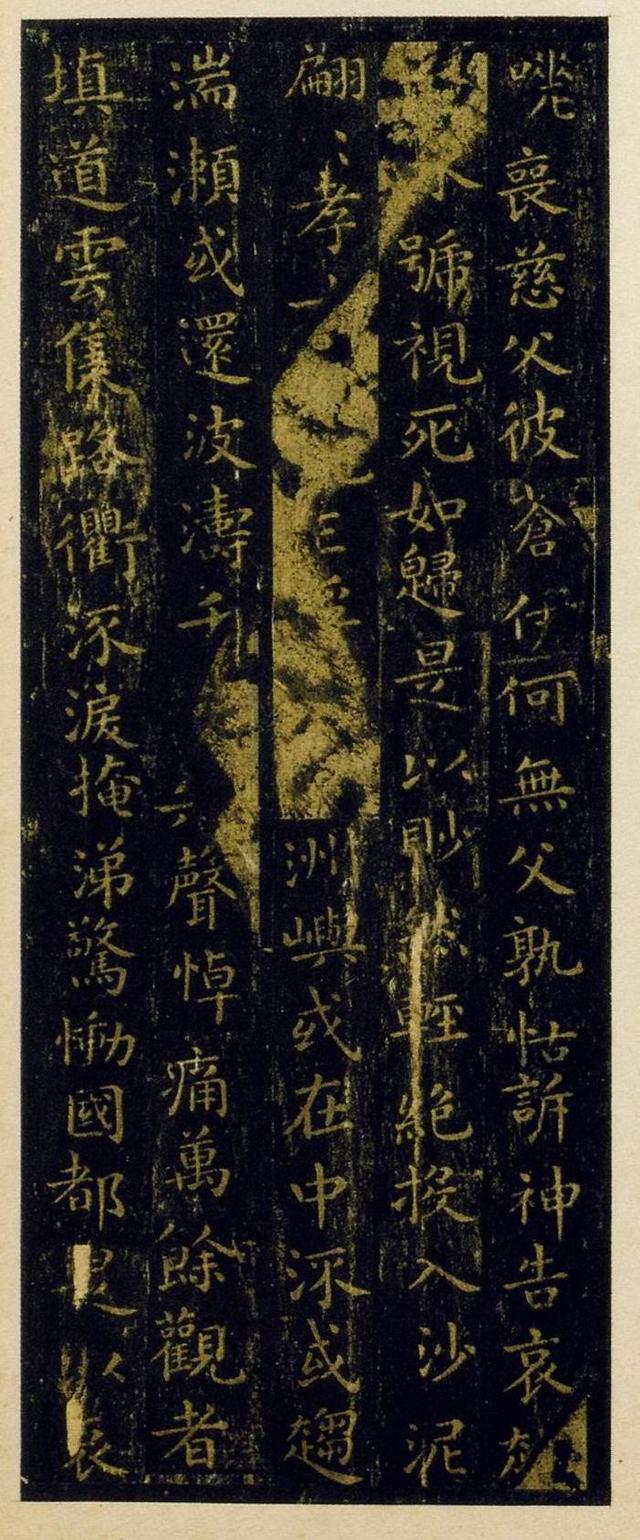 咷喪慈父彼蒼伊何無父孰怙訴神告哀
號視死如歸是以眇然輕絕投入沙泥
翩〻孝洲嶼或在中流或趨
湍瀨或還波濤千聲悼痛萬餘觀者
填道雲集路衢流淚掩涕驚慟國都是以哀